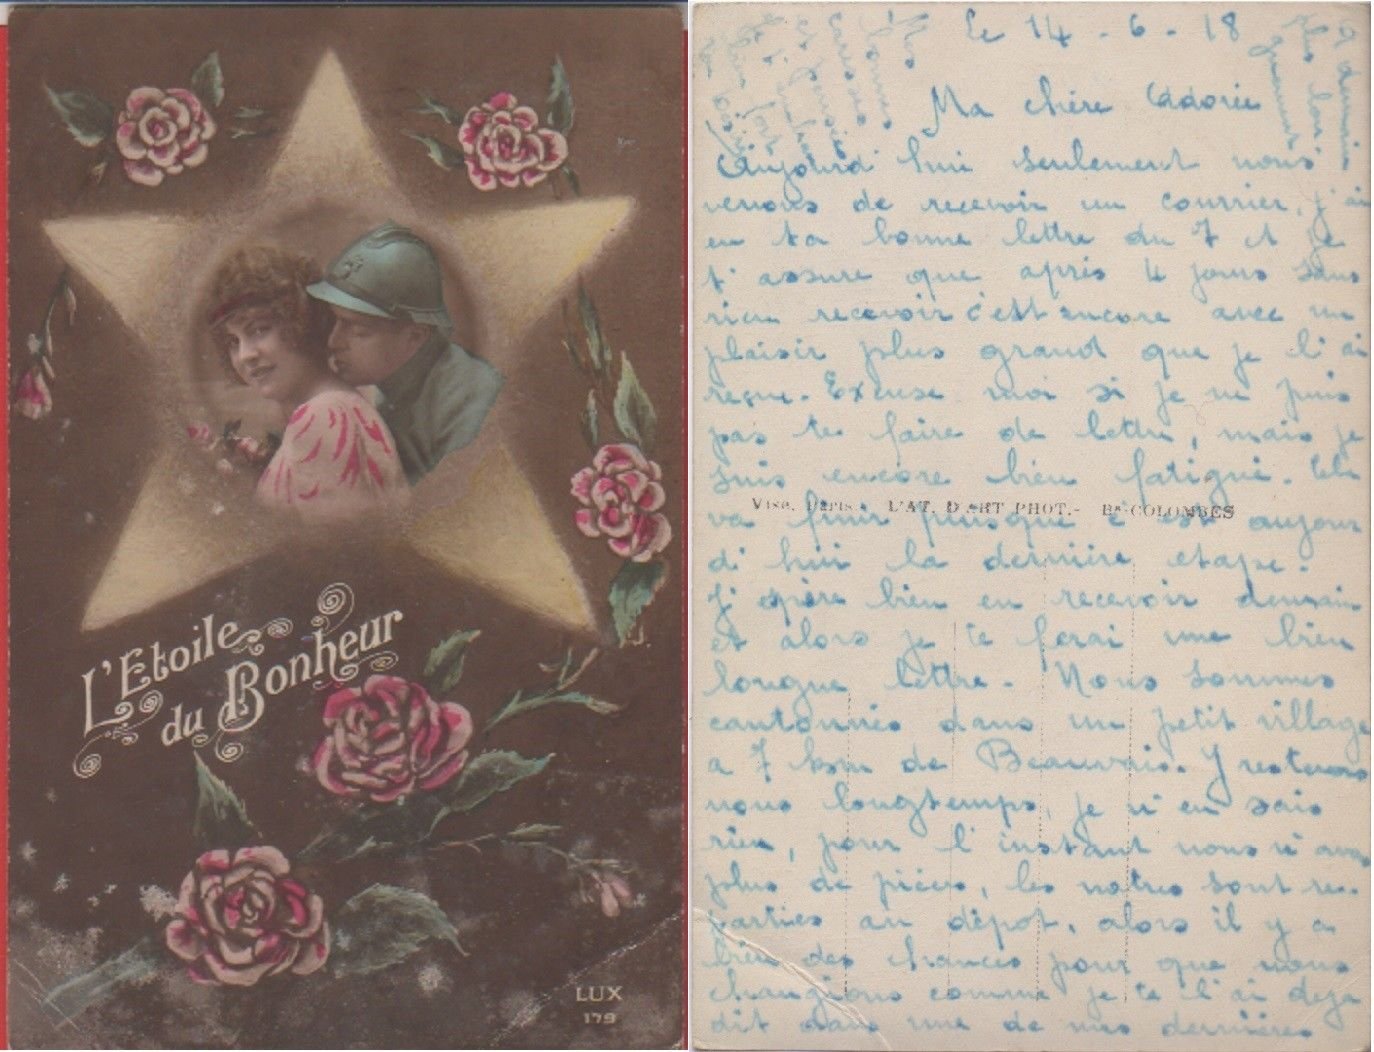 L'Etoile
du Bonheur
LUX
179
le 14 - 6 - 18
Ma chère Adorée
Aujourd'hui seulement nous
venons de recevoir un courrier, j'ai
eu ta bonne lettre du 7 et je
t'assure que après 4 jours sans
rien recevoir c'est encore avec un
plaisir plus grand que je l'ai
reçue. Excuse moi si je ne puis
pas te faire de lettre, mais je
suis encore bien fatigué. Cela
va finir puisque c'est aujour
d'hui la dernière etape.
Vise, Paris. L'AT. D'ART PHOT.- Bs-COLOMBES
J'espère bien en recevoir demain
et alors je te ferai une bien
longue lettre. Nous sommes
cantonnés dans un petit village
a 7 km de Beauvais. Y resterons
nous longtemps, je n'en sais
rien, pour l'instant nous n'avons
plus de pièces, les notres sont re-
parties au dépot, alors il y a
bien des chances pour que nous
changions comme je te l'ai deja
dit dans une de mes dernières
A demain
plus longuement
Mes bonnes
caresses
et pensées